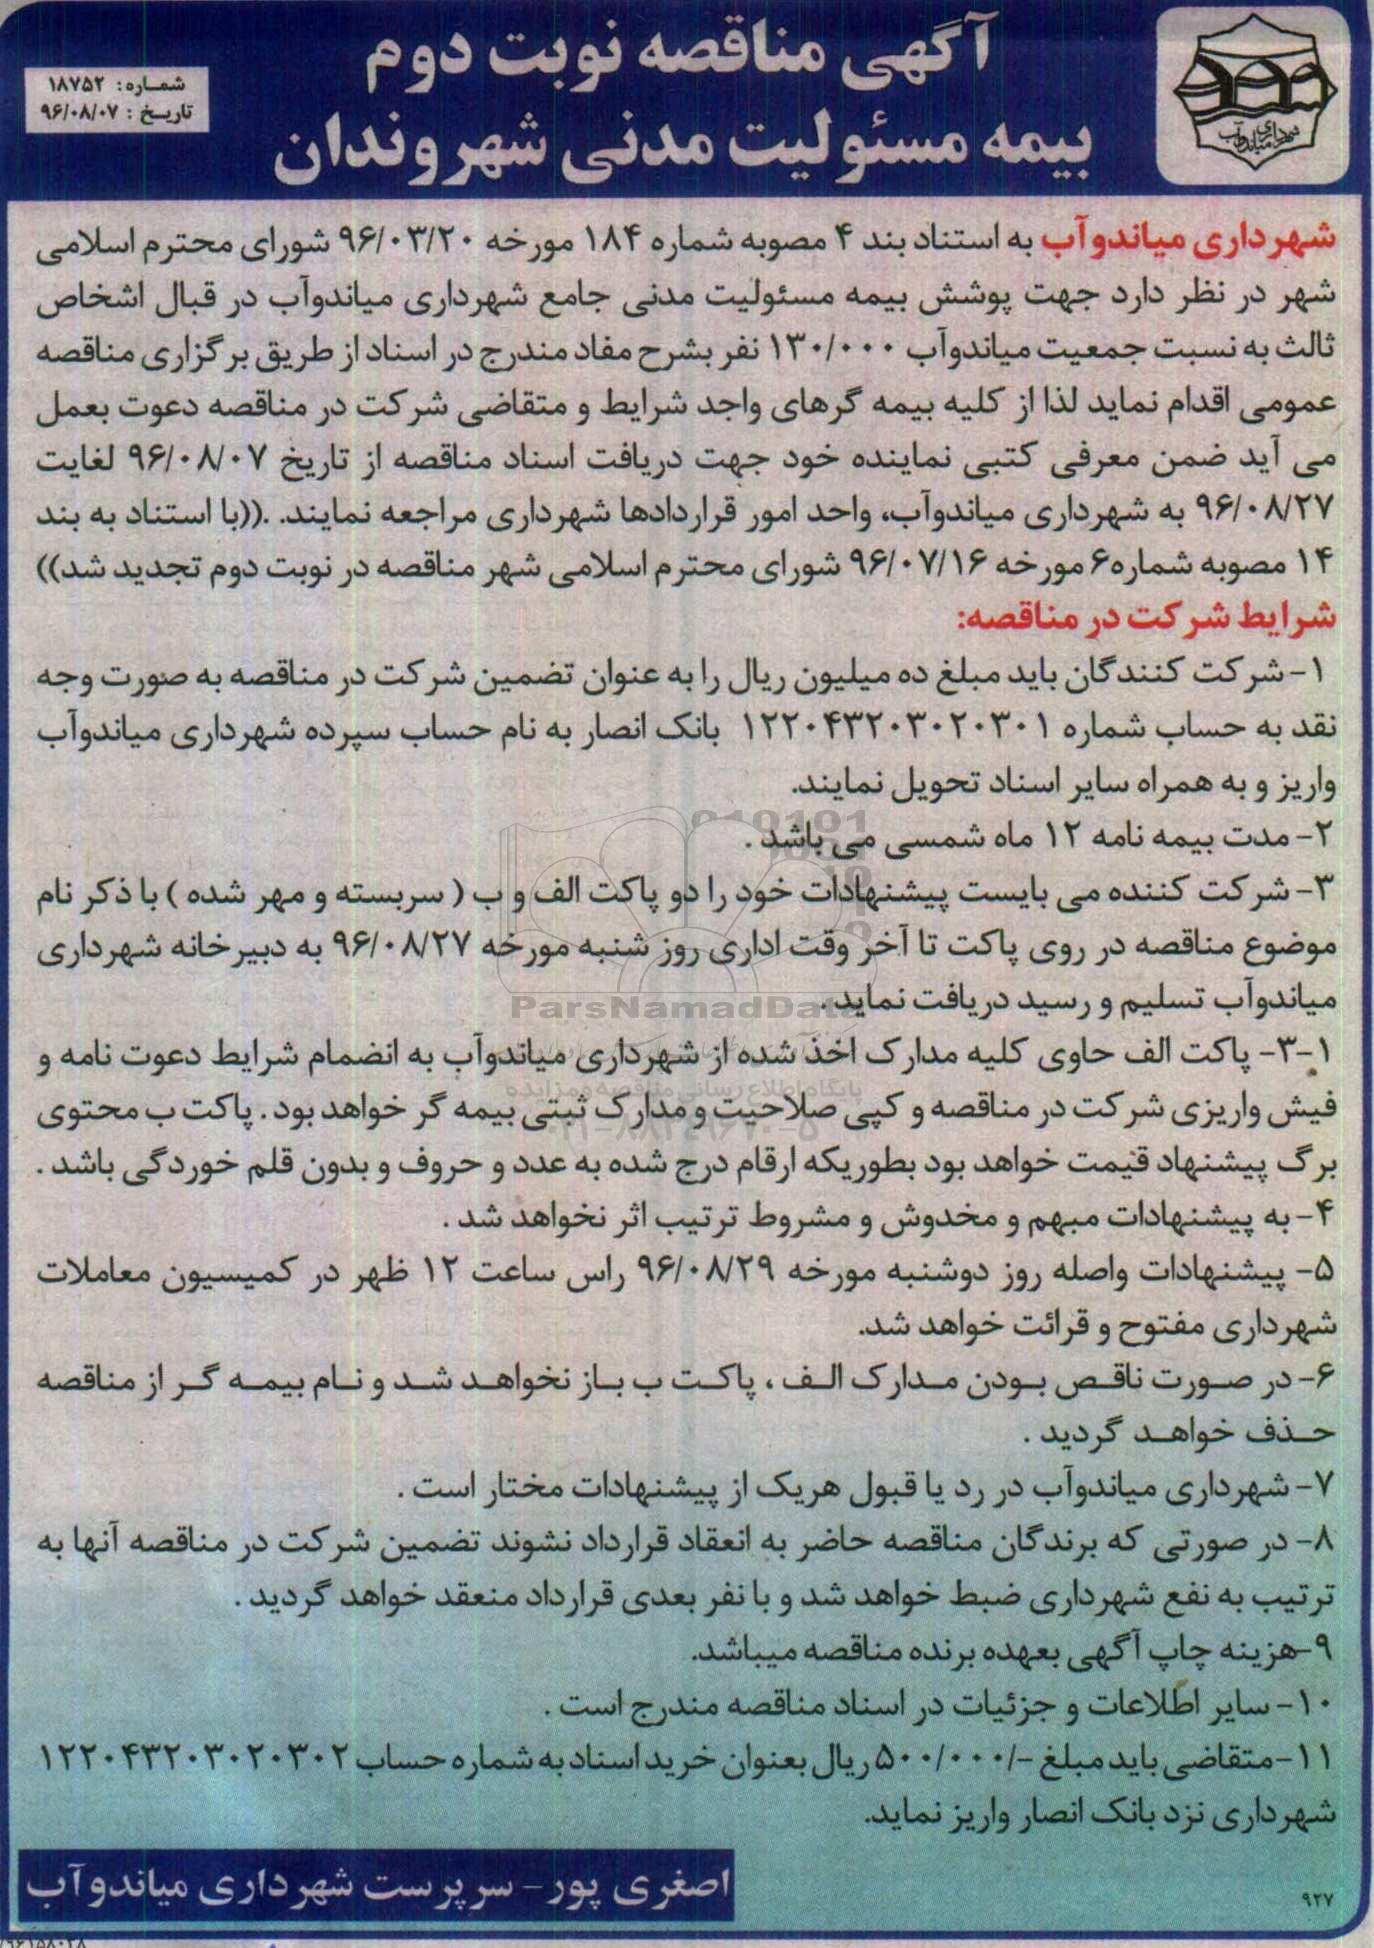 آگهی مناقصه نوبت دوم
بیمه مسئولیت مدنی شهروندان
شماره: ۱۸۷۵۲
تاریخ: ۹۶/۰۸/۰۷
شهرداری میاندوآب
شهرداری میاندوآب به استناد بند ۴ مصوبه شماره ۱۸۴ مورخه ۹۶/۰۳/۲۰ شورای محترم اسلامی
شهر در نظر دارد جهت پوشش بیمه مسئولیت مدنی جامع شهرداری میاندوآب در قبال اشخاص
ثالث به نسبت جمعیت میاندوآب ۱۳۰/۰۰۰ نفر بشرح مفاد مندرج در اسناد از طریق برگزاری مناقصه
عمومی اقدام نماید لذا از کلیه بیمه گرهای واجد شرایط و متقاضی شرکت در مناقصه دعوت بعمل
می آید ضمن معرفی کتبی نماینده خود جهت دریافت اسناد مناقصه از تاریخ ۹۶/۰۸/۰۷ لغایت
۹۶/۰۸/۲۷ به شهرداری میاندوآب، واحد امور قراردادها شهرداری مراجعه نمایند. .((با استناد به بند
۱۴ مصوبه شماره۶ مورخه ۹۶/۰۷/۱۶ شورای محترم اسلامی شهر مناقصه در نوبت دوم تجدید شد))
شرایط شرکت در مناقصه:
۱- شرکت کنندگان باید مبلغ ده میلیون ریال را به عنوان تضمین شرکت در مناقصه به صورت وجه
نقد به حساب شماره ۱۲۲۰۴۳۲۰۳۰۲۰۳۰۱ بانک انصار به نام حساب سپرده شهرداری میاندوآب
واریز و به همراه سایر اسناد تحویل نمایند.
۲- مدت بیمه نامه ۱۲ ماه شمسی می باشد .
۳- شرکت کننده می بایست پیشنهادات خود را دو پاکت الف و ب ( سربسته و مهر شده ) با ذکر نام
موضوع مناقصه در روی پاکت تا آخر وقت اداری روز شنبه مورخه ۹۶/۰۸/۲۷ به دبیرخانه شهرداری
میاندوآب تسلیم و رسید دریافت نماید.
ParsNamadData
۳-۱- پاکت الف حاوی کلیه مدارک اخذ شده از شهرداری میاندوآب به انضمام شرایط دعوت نامه و
پایگاه اطلاع رسانی مناقصه و مزایده
فیش واریزی شرکت در مناقصه و کپی صلاحیت و مدارک ثبتی بیمه گر خواهد بود . پاکت ب محتوی
۰۲۱-۸۸۳۴۹۶۷۰-۵
برگ پیشنهاد قیمت خواهد بود بطوریکه ارقام درج شده به عدد و حروف و بدون قلم خوردگی باشد .
۴- به پیشنهادات مبهم و مخدوش و مشروط ترتیب اثر نخواهد شد .
۵- پیشنهادات واصله روز دوشنبه مورخه ۹۶/۰۸/۲۹ راس ساعت ۱۲ ظهر در کمیسیون معاملات
شهرداری مفتوح و قرائت خواهد شد.
۶- در صورت ناقص بودن مدارک الف ، پاکت ب باز نخواهد شد و نام بیمه گر از مناقصه
حذف خواهد گردید .
۷- شهرداری میاندوآب در رد یا قبول هریک از پیشنهادات مختار است .
۸- در صورتی که برندگان مناقصه حاضر به انعقاد قرارداد نشوند تضمین شرکت در مناقصه آنها به
ترتیب به نفع شهرداری ضبط خواهد شد و با نفر بعدی قرارداد منعقد خواهد گردید .
۹-هزینه چاپ آگهی بعهده برنده مناقصه میباشد.
۱۰- سایر اطلاعات و جزئیات در اسناد مناقصه مندرج است .
۱۱- متقاضی باید مبلغ -/۵۰۰/۰۰۰ ریال بعنوان خرید اسناد به شماره حساب ۱۲۲۰۴۳۲۰۳۰۲۰۳۰۲
شهرداری نزد بانک انصار واریز نماید.
اصغری پور - سرپرست شهرداری میاندوآب
۹۲۷